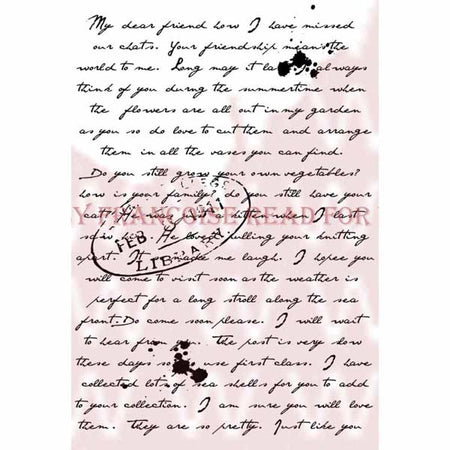 My dear friend how I have missed
our chats. Your friendship means the
world to me. Long may it always
think of you durng the summertime when
the flowers are all out in my garden
as you so do love to cut them and arrange
them in all the vases you can find.
Do you still grow your own vegetables?
how is your family? do you still have your
cat? He was just a kitten when I last
Y FRANCOISE READ FOR
saw him. He loved pulling your knitting
FEB
LIB
apart. It made me laugh. I hopee you
will come to visit soon as the weather is
perfect for a long stroll along the sea
front. Do come soon please. I will wait
to hear from you. The post is very slow
these days so use first class. I have
collected lots of sea shells for you to add
to your collection. I am sure you will love
them. They are so pretty. Just like you